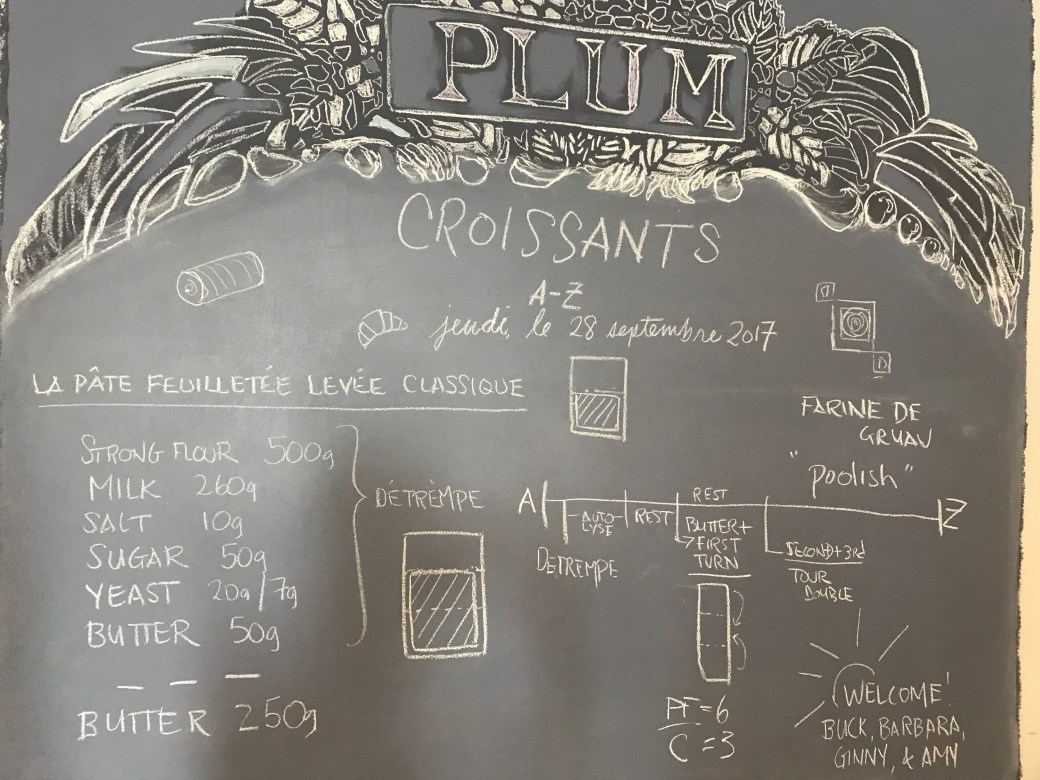 PLUM
CROISSANTS
A-Z
jeudi, le 28 septembre 2017
LA PÂTE FEUILLETÉE LEVÉE CLASSIQUE
STRONG FLOUR 500g
MILK 260g
SALT 10g
SUGAR 50g
YEAST 20g/7g
BUTTER 50g
BUTTER 250g
DÉTRÈMPE
FARINE DE
GRUAU
"Poolish"
A
REST
Z
AUTO-
LYSE
REST
BUTTER+
FIRST
TURN
DETREMPE
SECOND+3rd
TOUR
DOUBLE
PF=6
C=3
WELCOME!
BUCK, BARBARA,
GINNY, & AMY